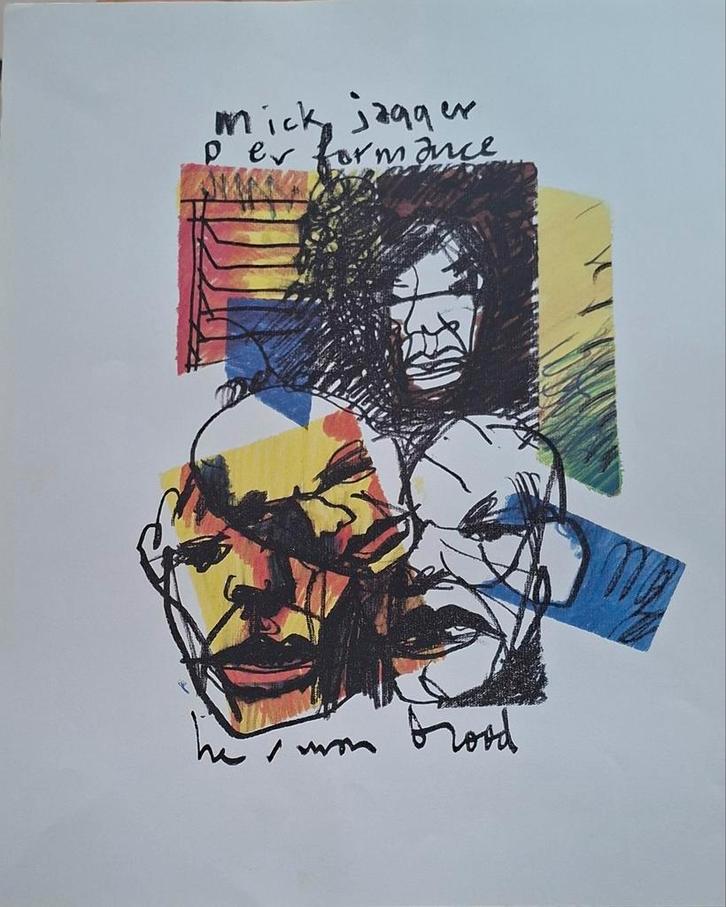 mick jagger
performance
herman brood